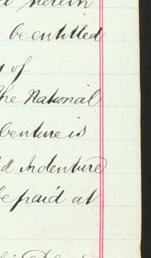 herein
be entitled
of
the National
benture is
Indenture
be paid at